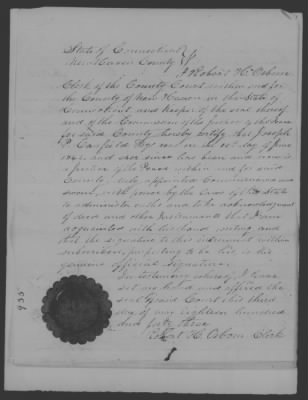 State of Connecticut
New Haven County
I Robert H. Osborn
Clerk of the County Court within and for
the County of New Haven in the State of
Connecticut, and keeper of the seal thereof
and of the Commission of the justices of the Peace
for said County hereby certify that Joseph
P. Canfield Esqr was on the 1st day of June
and ever since has been and now is
a justice of the Peace within and for said
County, duly appointed Commissioned and
sworn, with power by the Laws of this State
to administer oaths and to take acknowledgment
of deeds and other Instruments that I am
acquainted with his hand writing and
that the signature to this instrument within
subscribed, purporting to be his, is his
genuine official signature.
In testimony whereof, I have
set my hand and affixed the
seal of said Court this third
day of May eighteen hundred
and forty three
Robert H. Osborn Clerk
933